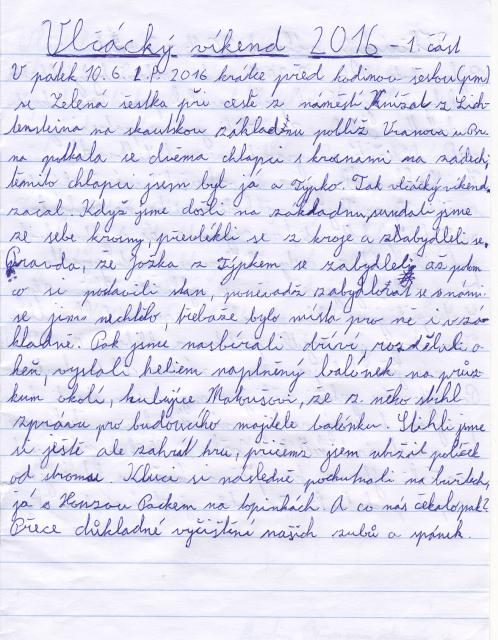 Vlčácký víkend 2016 - 1. část
V pátek 10.6. L.P. 2016 krátce před hodinou šestou (pm)
se Zelená šestka při cestě z náměstí Knížat z Lich-
tensteina na skautskou základnu poblíž Vranova u Br
na potkala se dvěma chlapci s krosnami na zádech,
těmito chlapci jsem byl já a Týpko. Tak vlčácký víkend
začal. Když jsme došli na základnu, sundali jsme
ze sebe krosny, převlékli se z kroje a zabydleli se.
Pravda, že Jožka s Týpkem se zabydleli až potom
co si postavili stan, poněvadž zabydlovat se s námi
se jim nechtělo, třebaže bylo místa pro ně i v zá-
kladně. Pak jsme nasbírali dříví, rozdělali o-
heň, vyslali heliem naplněný balónek na průz-
kum okolí, slibujíce Matoušovi, že z něko stihl
zprávu pro budoucího majitele balónku. Stihli jsme
si ještě ale zahrát hru, přičemž jsem utržil políček
od stromu. Kluci si následně pochutnali na buřtech,
já s Honzou Packem na topinkách. A co nás čekalo pak?
Přece důkladné vyčištění našich zubů a spánek.